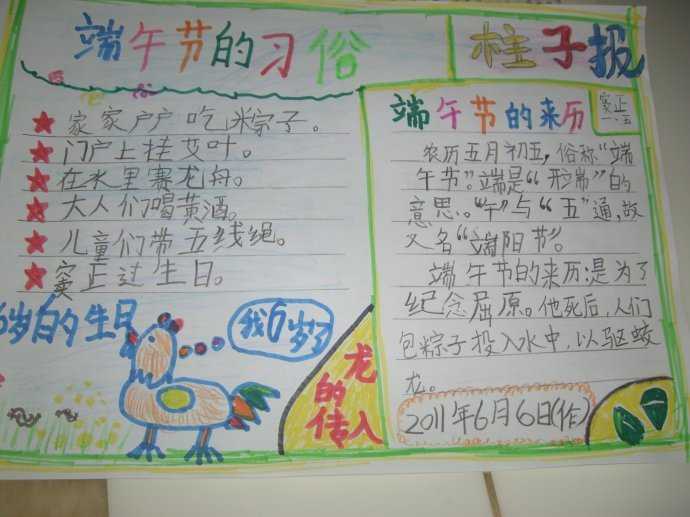 端午节的习俗
柱子报
家家户户吃粽子。
门户上挂艾叶。
在水里赛龙舟。
大人们喝黄酒。
儿童们带五线绳。
窦正过生日。
6岁白的生日
我6岁了
龙的传人
端午节的来历
窦正
一.五
农历五月初五,俗称“端
午节”。端是“形耑”的
意思。“午”与“五”通,故
又名“端阳节”。
端午节的来历:是为了
纪念屈原。他死后,人们
包粽子投入水中,以驱蛟
龙。
2011年6月6日(作)